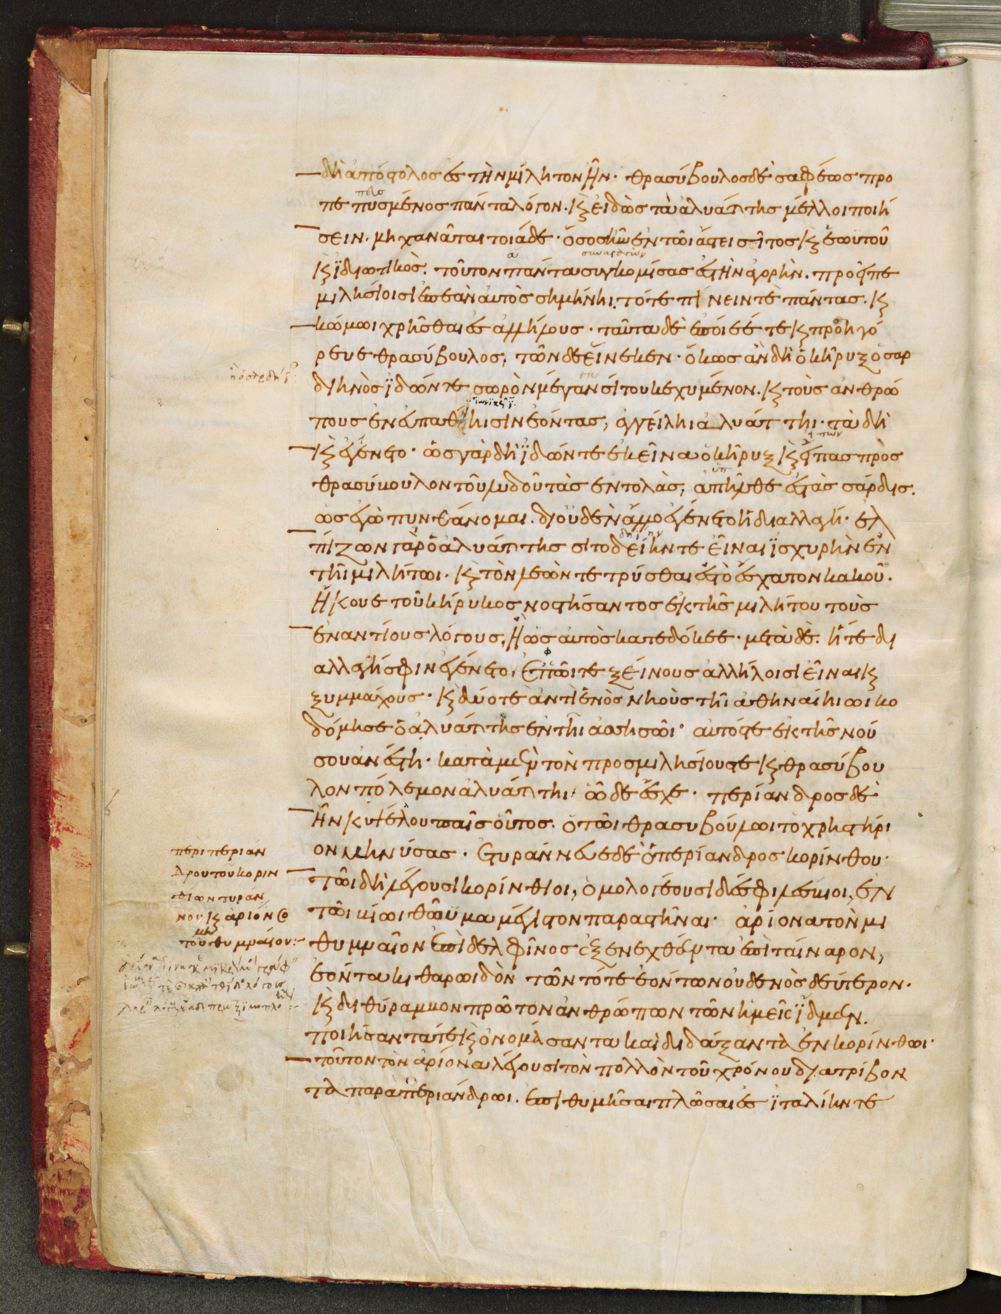 δὴ ἀπόστολος ἐς τὴν μίλητον ἦν· θρασύβουλος δὲ σαφέως προ
πεπυσμένος πάντα λόγον. καὶ εἰδὼς τὰ ἀλυάττης μέλλοι ποιή
σειν. μηχανᾶται τοιάδε· ὅσος ἦν ἐν τῶι ἄστει σῖτος καὶ ἑωυτοῦ
καὶ ἰδιωτικὸς. τοῦτον πάντα συγκομίσας ἐς τὴν ἀγορὴν. προεῖπε
μιλησίοισι ἐπεὰν αὐτὸς σημήνηι. τότε πίνειν τὲ πάντας. καὶ
κώμωι χρῆσθαι ἐς ἀλλήλους· ταῦτα δὲ ἐποίεέ τε καὶ προηγό
ρευε θρασύβουλος, τῶν δὲ εἵνεκεν· ὅκως ἂν δὴ ὁ κῆρυξ ὁ σαρ
διηνὸς ἰδών τε σωρὸν μέγαν σίτου κεχυμένον. καὶ τοὺς ἀνθρώ
πους ἐν εὐπαθείηισιν ἐόντας, ἀγγείληι ἀλυάττηι· τὰ δὴ
καὶ ἐγένετο· ὡς γὰρ δὴ ἰδών τε ἐκεῖνα ὁ κῆρυξ καὶ εἴπας πρὸς
θρασύβουλον τοῦ λυδοῦ τὰς ἐντολὰς, ἀπῆλθε ἐς τὰς σάρδις.
ὡς ἐγὼ πυνθάνομαι. δι οὐδὲν ἄλλο ἐγένετο ἡ διαλλαγή· ἐλ
πίζων γὰρ ὁ ἀλυάττης σιτοδείην τε εἶναι ἰσχυρὴν ἐν
τῆι μιλήτωι. καὶ τὸν λεὼν τετρύσθαι ἐς τὸ ἔσχατον κακοῦ.
ἤκουε τοῦ κήρυκος νοστήσαντος ἐκ τῆς μιλήτου τοὺς
ἐναντίους λόγους, ἢ ὡς αὐτὸς κατεδόκεε· μετὰ δὲ. ἥ τε δι
αλλαγή σφιν ἐγένετο, ἐπ ὧι τε ξείνους ἀλλήλοισι εἶναι καὶ
ξυμμάχους· καὶ δύο τε ἀντὶ ἑνὸς νηοὺς τῆι ἀθηναίηι οἰκο
δόμησε ὁ ἀλυάττης ἐν τῆι ἀσσησῶι· αὐτός τε ἐκ τῆς νού
σου ἀνέστη. κατὰ μὲν τὸν πρὸς μιλησίους τε καὶ θρασύβου
λον πόλεμον ἀλυάττηι ὧδε ἔσχε. περίανδρος δὲ
ἦν κυψέλου παῖς οὗτος. ὁ τῶι θρασυβούλωι τὸ χρηστήρι
ον μηνύσας. ἐτυράννευε δὲ ὁ περίανδρος κορίνθου·
τῶι δὴ λέγουσι κορίνθιοι, ὁμολογέουσι δέ σφι λέσβιοι, ἐν
τῶι βίωι θῶυμα μέγιστον παραστῆναι· ἀρίονα τὸν μη
θυμναῖον ἐπὶ δελφῖνος ἐξενεχθέντα ἐπὶ ταίναρον,
ἐόντα κιθαρωιδὸν τῶν τότε ἐόντων οὐδενὸς δεύτερον.
καὶ διθύραμβον πρῶτον ἀνθρώπων τῶν ἡμεῖς ἴδμεν.
ποιήσαντά τε καὶ ὀνομάσαντα καὶ διδάξαντα ἐν κορίνθωι·
τοῦτον τὸν ἀρίονα λέγουσι τὸν πολλὸν τοῦ χρόνου διατρίβον
τα παρὰ περιάνδρωι. ἐπιθυμῆσαι πλῶσαι ἐς ἰταλίην τε
περὶ περίαν
δρου τοῦ κοριν
θίων τυράν
νου· καὶ ἀρίονος
τοῦ μηθυμναίου: